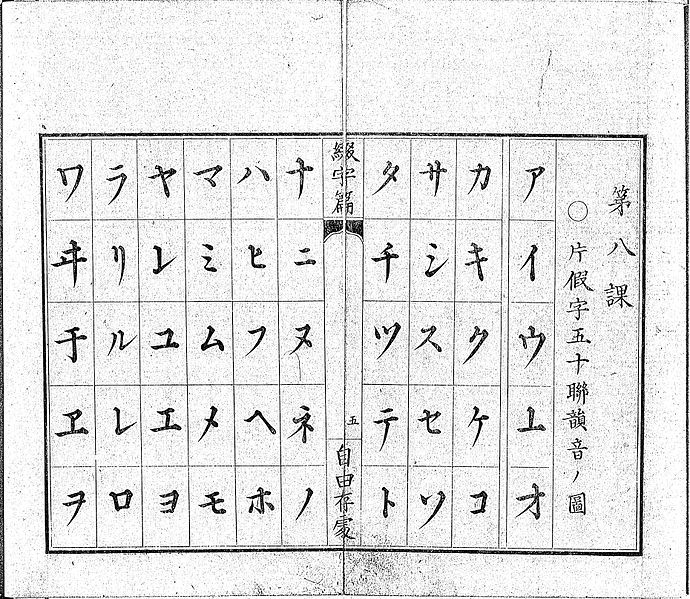 第八課
○片假字五十聯韻音ノ圖
アイウ上オ
カキクケコ
サシスセソ
タチツテト
綴字篇
五
自由存處
ナニヌネノ
ハヒフヘホ
マミムメモ
ヤ𛄠ユエヨ
ラリルレロ
ワヰ于ヱヲ